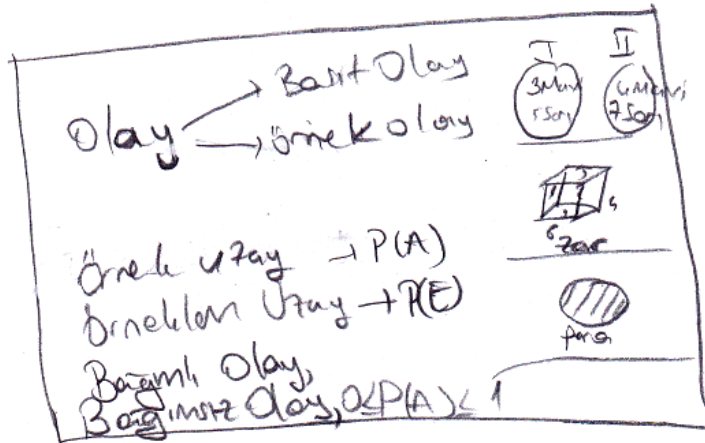 Olay
Basit Olay
örnek olay
Örnek uzay → P(A)
Örneklem Uzay → P(E)
Bağımlı Olay,
Bağımsız Olay, 0≤P(A)≤1
I
3Mavi
5Sarı
II
4Mavi
7Sarı
6
Zar
para